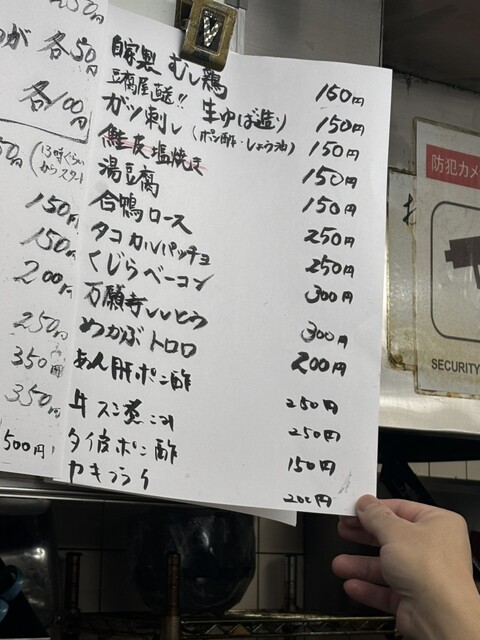 が 各50円
各100円
50円 (13時ぐらいからスタート
150円
150円
200円
250円
350円
350円
500円
自家製 むし鶏 150円
豆腐屋直送!! 生ゆば造り 150円
ガツ刺し (ポン酢・しょうゆ) 150円
鮭皮塩焼き 150円
湯豆腐 150円
合鴨ロース 250円
タコカルパッチョ 250円
くじらベーコン 300円
万願寺ししとう 300円
めかぶトロロ 200円
あん肝ポン酢 250円
牛スジ煮こみ 250円
タイ皮ポン酢 150円
カキフライ 200円
防犯カメ
SECURITY